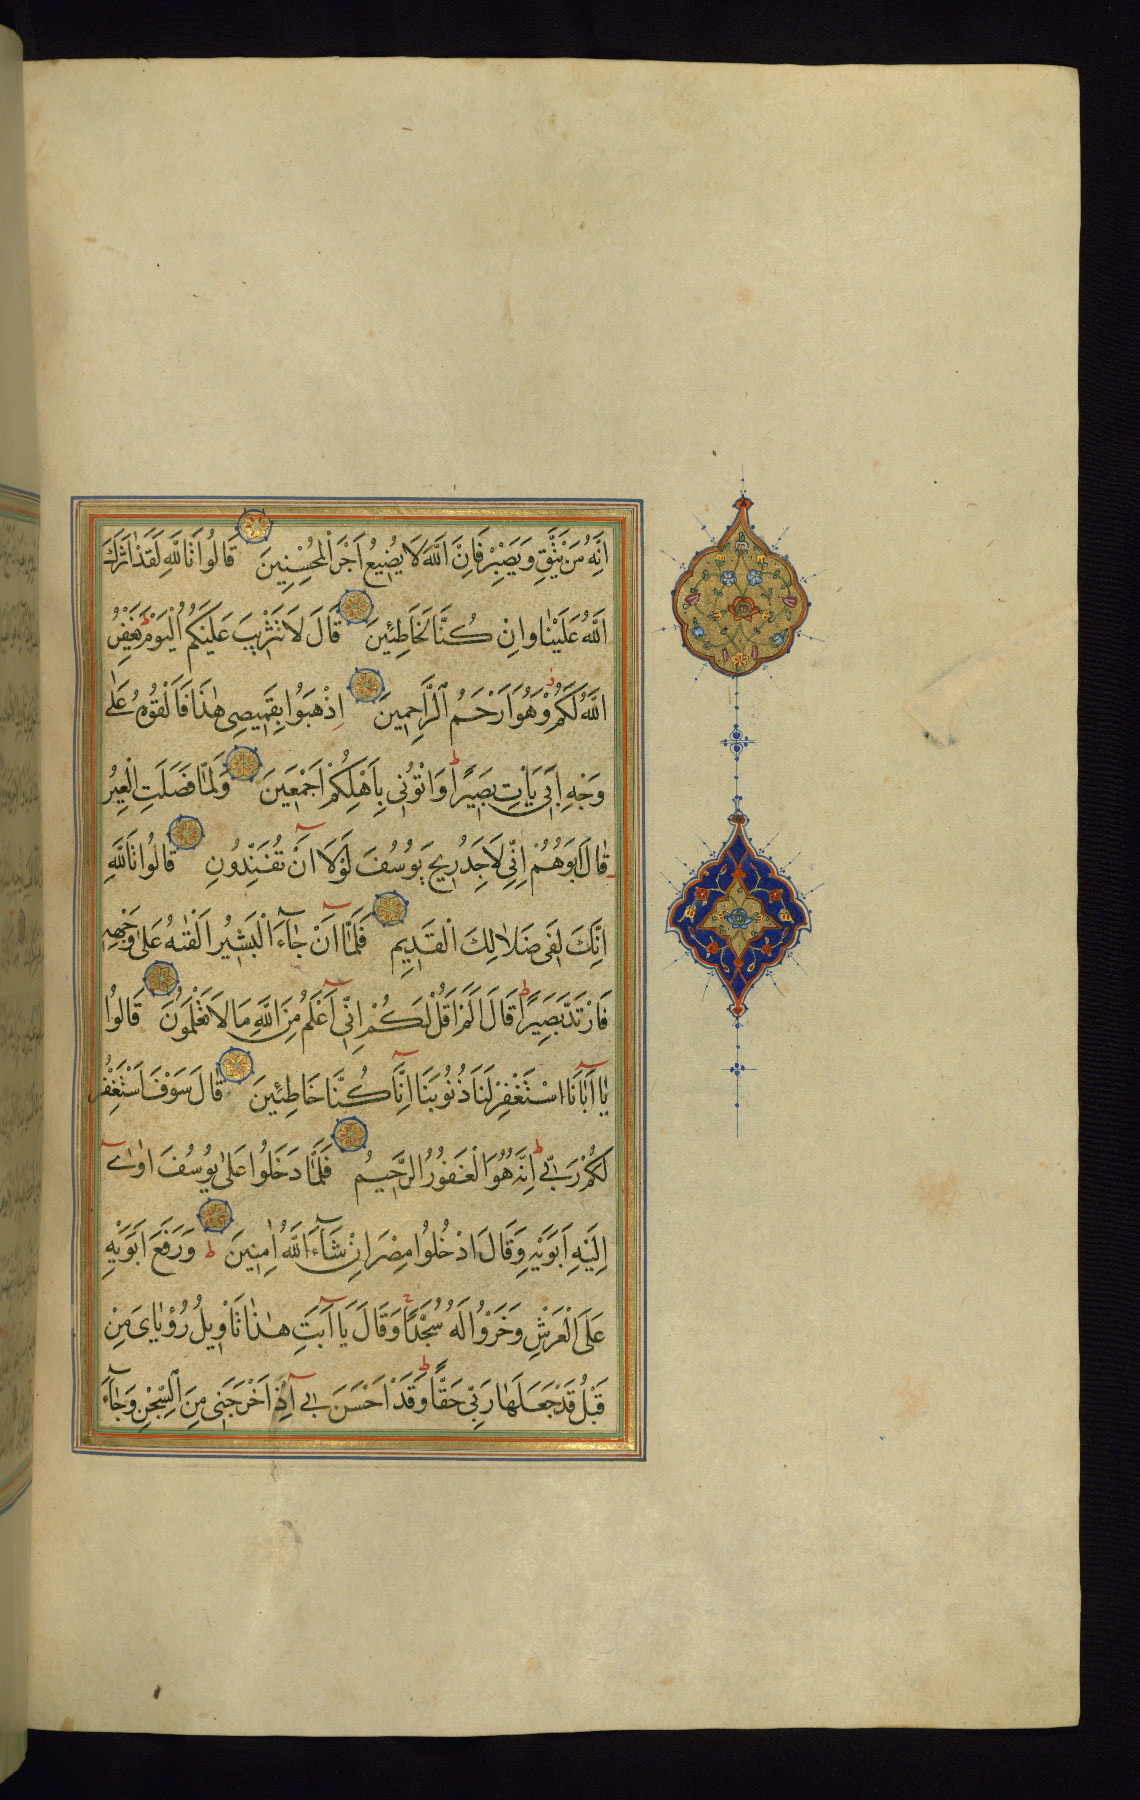 اِنَّهُ مَنْ يَتَّقِ وَيَصْبِرْ فَاِنَّ اللّٰهَ لَا يُضِيعُ اَجْرَ الْمُحْسِنِينَ قَالُوا تَاللّٰهِ لَقَدْ اٰثَرَكَ
اللّٰهُ عَلَيْنَا وَاِنْ كُنَّا لَخَاطِئِينَ قَالَ لَا تَثْرِيبَ عَلَيْكُمُ الْيَوْمَ يَغْفِرُ
اللّٰهُ لَكُمْ وَهُوَ اَرْحَمُ الرَّاحِمِينَ اِذْهَبُوا بِقَمِيصِى هٰذَا فَاَلْقُوهُ عَلٰى
وَجْهِ اَبِى يَأْتِ بَصِيرًا وَاْتُونِى بِاَهْلِكُمْ اَجْمَعِينَ وَلَمَّا فَصَلَتِ الْعِيرُ
قَالَ اَبُوهُمْ اِنِّى لَاَجِدُ رِيحَ يُوسُفَ لَوْلَا اَنْ تُفَنِّدُونِ قَالُوا تَاللّٰهِ
اِنَّكَ لَفِى ضَلَالِكَ الْقَدِيمِ فَلَمَّا اَنْ جَاءَ الْبَشِيرُ اَلْقٰيهُ عَلٰى وَجْهِهِ
فَارْتَدَّ بَصِيرًا قَالَ اَلَمْ اَقُلْ لَكُمْ اِنِّى اَعْلَمُ مِنَ اللّٰهِ مَا لَا تَعْلَمُونَ قَالُوا
يَا اَبَانَا اسْتَغْفِرْ لَنَا ذُنُوبَنَا اِنَّا كُنَّا خَاطِئِينَ قَالَ سَوْفَ اَسْتَغْفِرُ
لَكُمْ رَبِّى اِنَّهُ هُوَ الْغَفُورُ الرَّحِيمُ فَلَمَّا دَخَلُوا عَلٰى يُوسُفَ اٰوٰى
اِلَيْهِ اَبَوَيْهِ وَقَالَ ادْخُلُوا مِصْرَ اِنْ شَاءَ اللّٰهُ اٰمِنِينَ وَرَفَعَ اَبَوَيْهِ
عَلَى الْعَرْشِ وَخَرُّوا لَهُ سُجَّدًا وَقَالَ يَا اَبَتِ هٰذَا تَأْوِيلُ رُؤْيَاىَ مِنْ
قَبْلُ قَدْ جَعَلَهَا رَبِّى حَقًّا وَقَدْ اَحْسَنَ بِى اِذْ اَخْرَجَنِى مِنَ السِّجْنِ وَجَاءَ